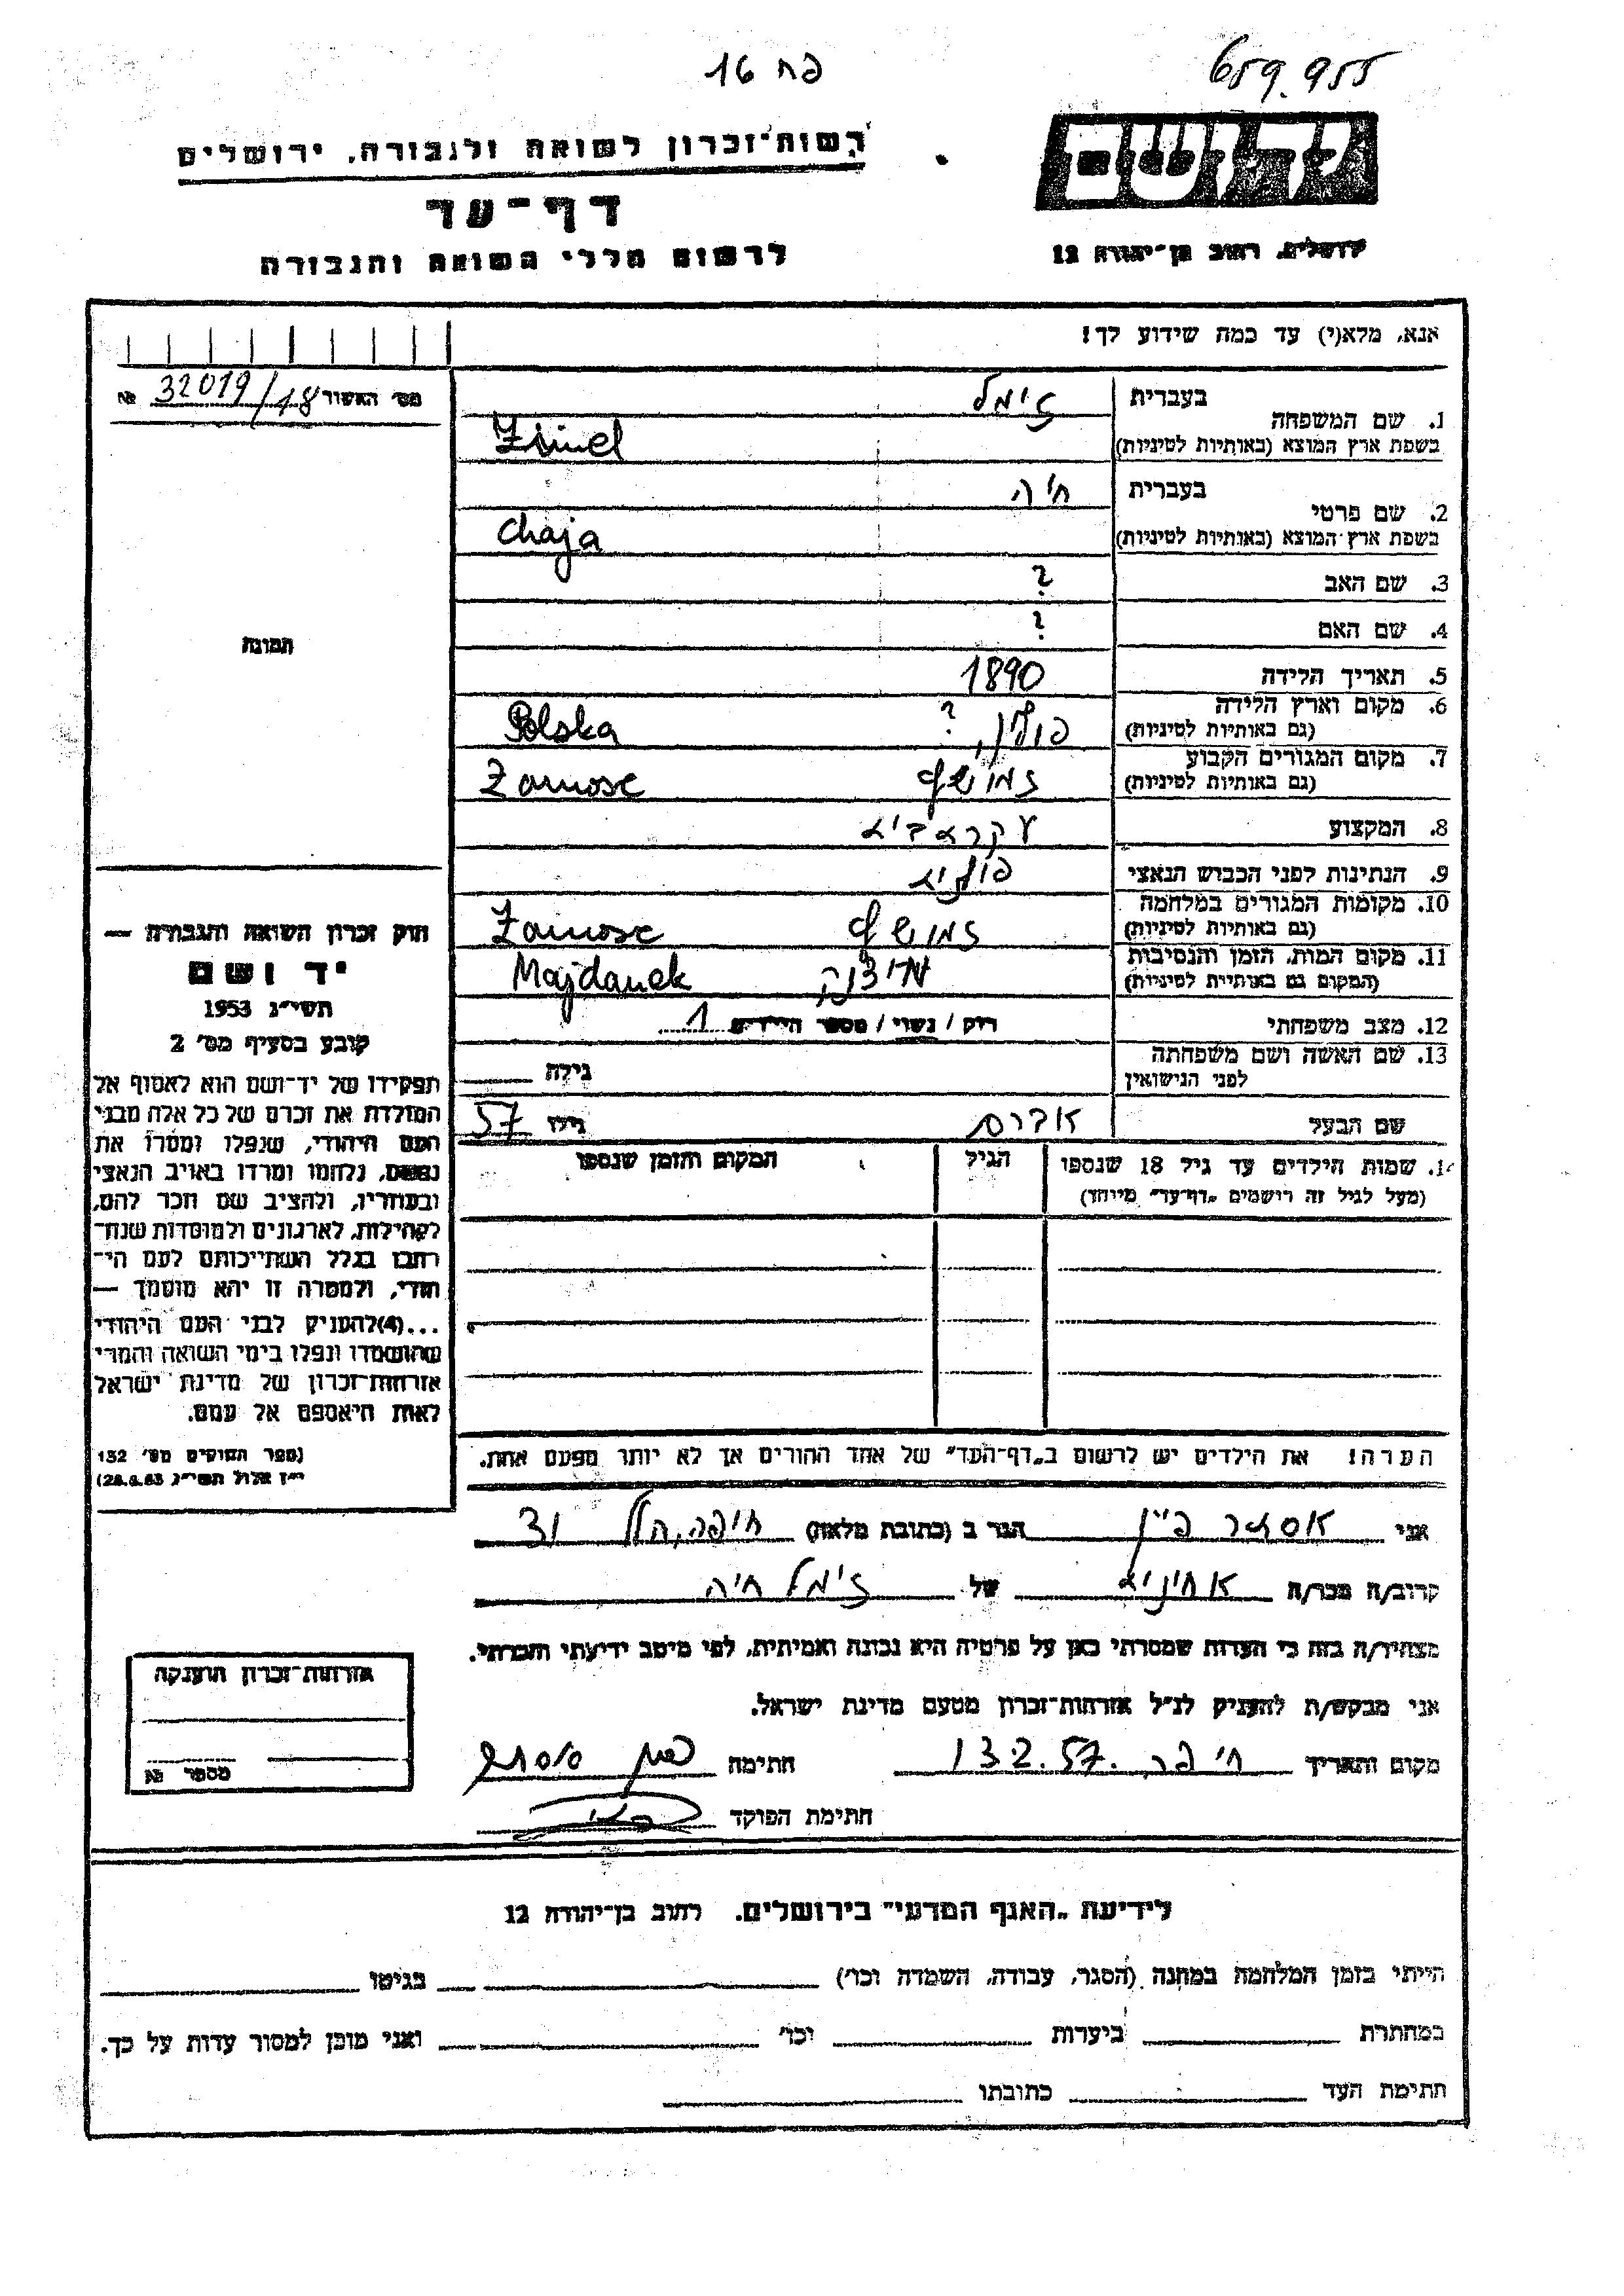 פח 16
659.955
רשות־זכרון לשואה ולגבורה, ירושלים
יד ושם
דף־עד
ירושלים, רחוב בן־יהודה 12
לרשום חללי השואה והגבורה
אנא, מלא(י) עד כמה שידוע לך!
מס׳ האשור 32019/18 №
1. שם המשפחה
בעברית זימל
בשפת ארץ המוצא (באותיות לטיניות) Zimel
2. שם פרטי
בעברית חיה
בשפת ארץ המוצא (באותיות לטיניות) Chaja
3. שם האב ?
4. שם האם ?
תמונה
5. תאריך הלידה 1890
6. מקום וארץ הלידה
(גם באותיות לטיניות) פולין, ? Polska
7. מקום המגורים הקבוע
(גם באותיות לטיניות) זמושץ Zamosc
8. המקצוע עקרת בית
9. הנתינות לפני הכבוש הנאצי פולנית
10. מקומות המגורים במלחמה
(גם באותיות לטיניות) זמושץ Zamosc
11. מקום המות, הזמן והנסיבות
(המקום גם באותיות לטיניות) Majdanek
12. מצב משפחתי רוק / נשוי / מספר הילדים 1
13. שם האשה ושם משפחתה
לפני הנישואין גילה
שם הבעל אברהם גילו 57
14. שמות הילדים עד גיל 18 שנספו הגיל המקום והזמן שנספו
(מעל לגיל זה רושמים „דף־עד״ מיוחד)
חוק זכרון השואה והגבורה —
יד ושם
תשי״ג 1953
קובע בסעיף מס׳ 2
תפקידו של יד־ושם הוא לאסוף אל
המולדת את זכרם של כל אלה מבני
העם היהודי, שנפלו ומסרו את
נפשם, נלחמו ומרדו באויב הנאצי
ובעוזריו, ולהציב שם וזכר להם,
לקהילות, לארגונים ולמוסדות שנח־
רבו בגלל השתייכותם לעם הי־
הודי, ולמטרה זו יהא מוסמך —
...(4)להעניק לבני העם היהודי
שהושמדו ונפלו בימי השואה והמרי
אזרחות־זכרון של מדינת ישראל
לאות היאספם אל עמם.
(ספר החוקים מס׳ 132
י״ז אלול תשי״ג 28.8.53)
הערה! את הילדים יש לרשום ב„דף־העד״ של אחד ההורים אך לא יותר מפעם אחת.
אני אסתר פיין הגר ב (כתובת מלאה) חיפה, הלל 31
קרוב/ה מכר/ה אחינית של זימל חיה
מצהיר/ה בזה כי העדות שמסרתי כאן על פרטיה היא נכונה ואמיתית, לפי מיטב ידיעתי והכרתי.
אני מבקש/ת להעניק לנ״ל אזרחות־זכרון מטעם מדינת ישראל.
מקום ותאריך חיפה 13.2.57. חתימה
חתימת הפוקד
אזרחות־זכרון הוענקה
מספר №
לידיעת „האגף המדעי״ בירושלים. רחוב בן־יהודה 12
הייתי בזמן המלחמה במחנה (הסגר, עבודה, השמדה וכו׳) בגיטו
במחתרת ביערות וכו׳ ואני מוכן למסור עדות על כך.
חתימת העד כתובתו